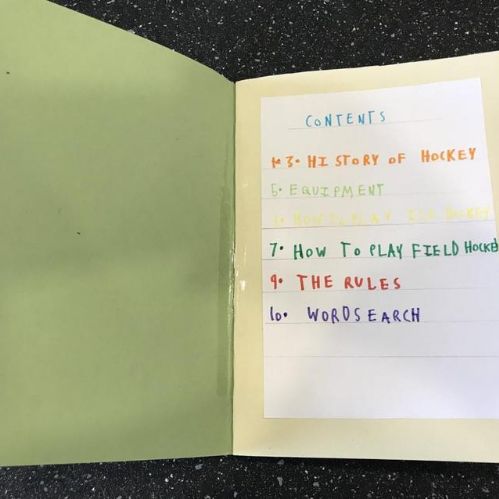 CONTENTS
3. HISTORY OF HOCKEY
5. EQUIPMENT
HOW TO PLAY ICE HOCKEY
7. HOW TO PLAY FIELD HOCKE
9. THE RULES
10. WORDSEARCH